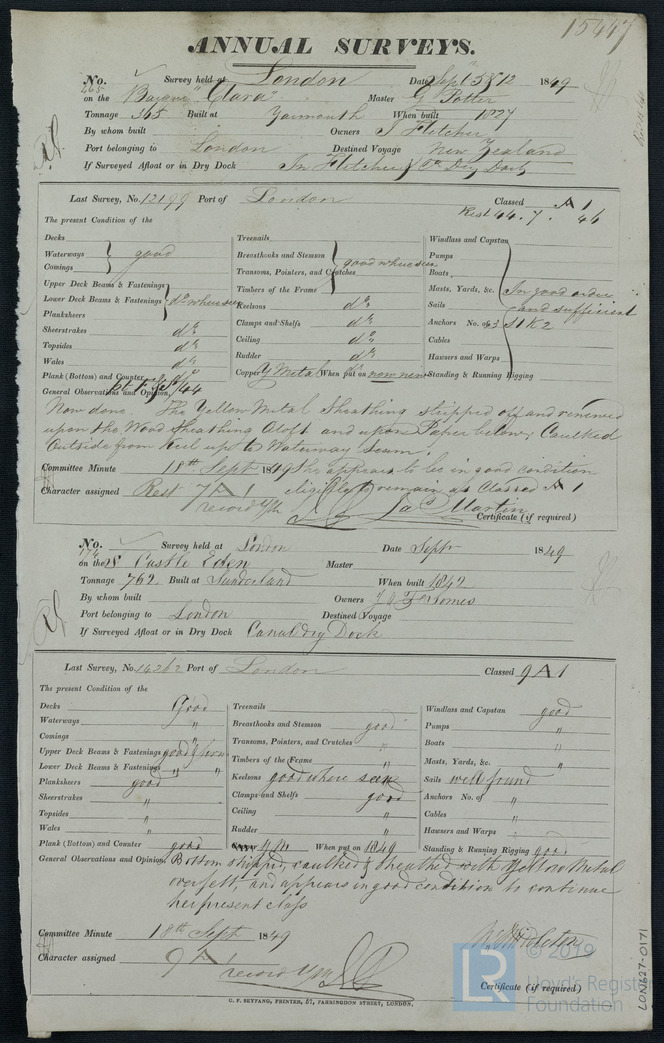 15447
ANNUAL SURVEYS.
No. 265 Survey held at London Date Sept 5 & 12 1849
on the Barque "Clara" Master G Potter
Tonnage 365 Built at Yarmouth When built 1827
By whom built Owners J Fletcher
Port belonging to London Destined Voyage New Zealand
If Surveyed Afloat or in Dry Dock In Fletcher's Dry Dock
Last Survey, No. 12199 Port of London Classed A 1
Rest 44. 7. 46
The present Condition of the
Decks
Waterways good
Comings
Upper Deck Beams & Fastenings
Lower Deck Beams & Fastenings do where seen
Planksheers
Sheerstrakes do
Topsides do
Wales do
Plank (Bottom) and Counter do
Treenails
Breasthooks and Stemson good where seen
Transoms, Pointers, and Crutches
Timbers of the Frame
Keelsons do
Clamps and Shelfs do
Ceiling do
Rudder do
Copper Y Metal When put on now new
Windlass and Capstan
Pumps
Boats
Masts, Yards, &c. In good order
Sails and sufficient
Anchors No. of 3 S 1 K 2
Cables
Hawsers and Warps
Standing & Running Rigging
General Observations and Opinion,
Now done. The Yellow Metal Sheathing stripped off and renewed
upon the Wood Sheathing Aloft and upon Paper below; Caulked
Outside from Keel up to Waterway Seam.
Committee Minute 18th Sept 1849 She appears to be in good condition
Character assigned Rest 7 A 1 eligible to remain as Classed A 1
record YM
Jas Martin
Certificate (if required)
No. 774 Survey held at London Date Sept 1849
on the S Castle Eden Master
Tonnage 762 Built at Sunderland When built 1842
By whom built Owners J & F Somes
Port belonging to London Destined Voyage
If Surveyed Afloat or in Dry Dock Canal dry Dock
Last Survey, No. 14262 Port of London Classed 9 A 1
The present Condition of the
Decks Good
Waterways "
Comings "
Upper Deck Beams & Fastenings good
Lower Deck Beams & Fastenings " "
Planksheers good
Sheerstrakes "
Topsides "
Wales "
Plank (Bottom) and Counter good
Treenails
Breasthooks and Stemson good
Transoms, Pointers, and Crutches "
Timbers of the Frame "
Keelsons good where seen
Clamps and Shelfs good
Ceiling "
Rudder "
Y M When put on 1849
Windlass and Capstan good
Pumps "
Boats "
Masts, Yards, &c. "
Sails well found
Anchors No. of "
Cables "
Hawsers and Warps "
Standing & Running Rigging good
General Observations and Opinion, Bottom stripped, caulked & sheathed with Yellow Metal
over felt, and appears in good condition to continue
her present class
Committee Minute 18th Sept 1849
Character assigned 9 A 1
record YM
Certificate (if required)
C. F. SEYFANG, PRINTER, 57, FARRINGDON STREET, LONDON.
LR © 2019
Lloyd's Register
Foundation
LON627-0171